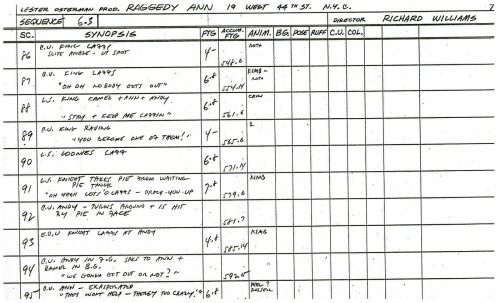 LESTER OSTERMAN PROD. RAGGEDY ANN 19 WEST 44TH ST. N.Y.C. 7
SEQUENCE 6.3 DIRECTOR RICHARD WILLIAMS
SC. SYNOPSIS FTG ACCUM. FTG ANIM. BG. POSE RUFF C.U. COL.
86 C.U. KING LAFFS 4- 548.6
SLITE ANGLE - UP SHOT
87 C.U. KING LAFFS 6.8 KIMB-
"OH OH NOBODY GETS OUT" 554.14
88 L.S. KING CAMEL + ANN + ANDY 6.8
"STAY + KEEP ME LAFFIN" 561.6
89 C.U. KING RAVING 4-
"YOU BECOME ONE OF THEM!" 565.6
90 L.S. LOONIES LAFF 6.8
571.14
91 L.S. KNIGHT TAKES PIE FROM WAITING 7.8 KIMB
PIE THING
"OH YEAH LOTS'O LAFFS - CRACK-YOU-UP 579.6
92 C.U. ANDY - TURNS AROUND + IS HIT
BY PIE IN FACE 581.7
93 E.C.U KNIGHT LAFFS AT ANDY 4.8 KIMB
585.14
94 C.U. ANDY IN F.G. SPKS TO ANN +
CAMEL IN B.G.
"WE GONNA GET OUT OR NOT?" 592.
95 C.U. ANN - EXASPERATED 6.8
"THAT WONT HELP - THEY'RE TOO CRAZY." RUSSELL